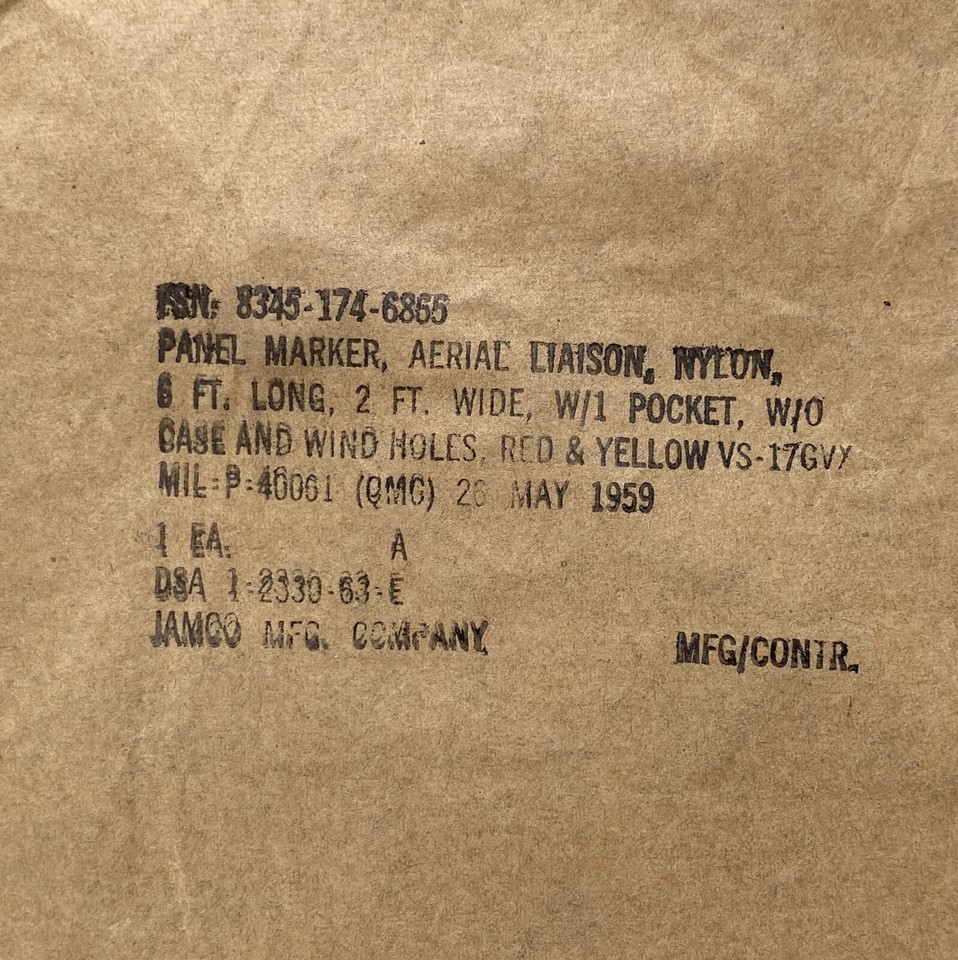 FSN: 8345-174-6865
PANEL MARKER, AERIAL LIAISON, NYLON,
6 FT. LONG, 2 FT. WIDE, W/1 POCKET, W/O
CASE AND WIND HOLES, RED & YELLOW VS-17GVX
MIL-P-40061 (QMC) 26 MAY 1959
1 EA. A
DSA 1-2330-63-E
JAMCO MFG. COMPANY MFG/CONTR.